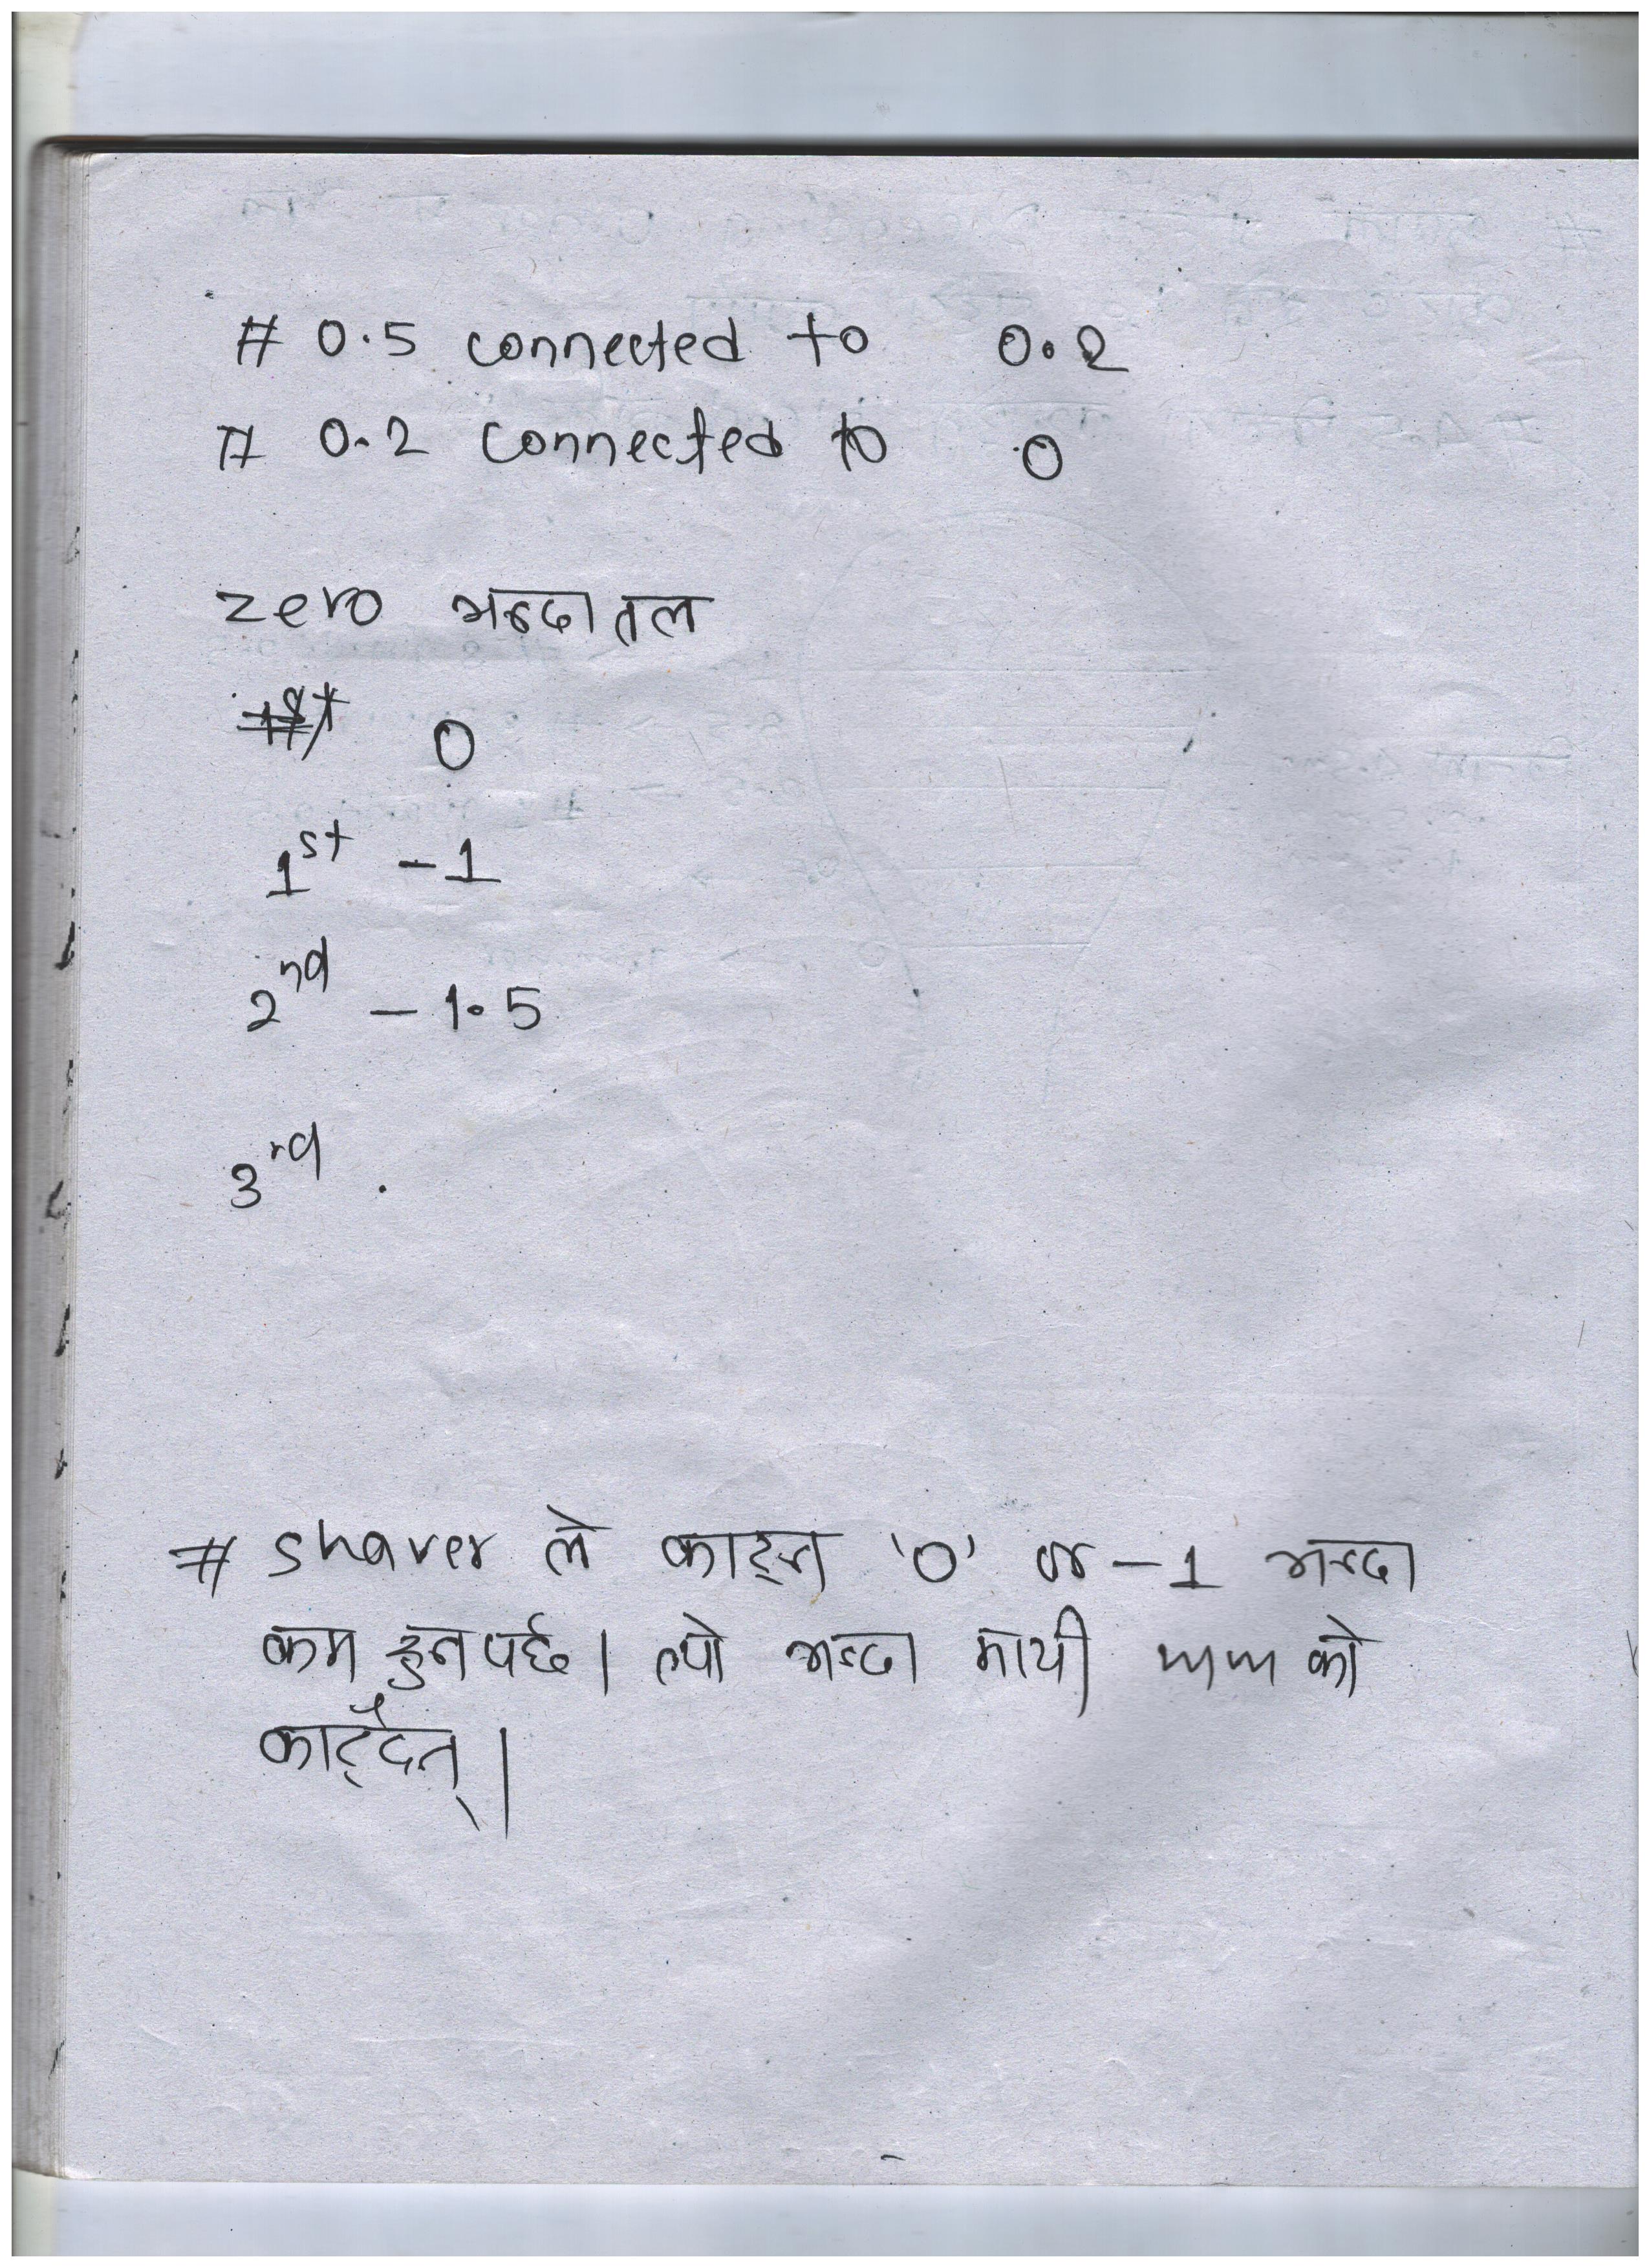 # 0.5 connected to 0.2
# 0.2 connected to 0
zero भन्दा तल
0
1st - 1
2nd - 1.5
3rd .
# shaver ले काट्न '0' or - 1 भन्दा
कम हुनपर्छ। त्यो भन्दा माथी mm को
काट्दैन्।